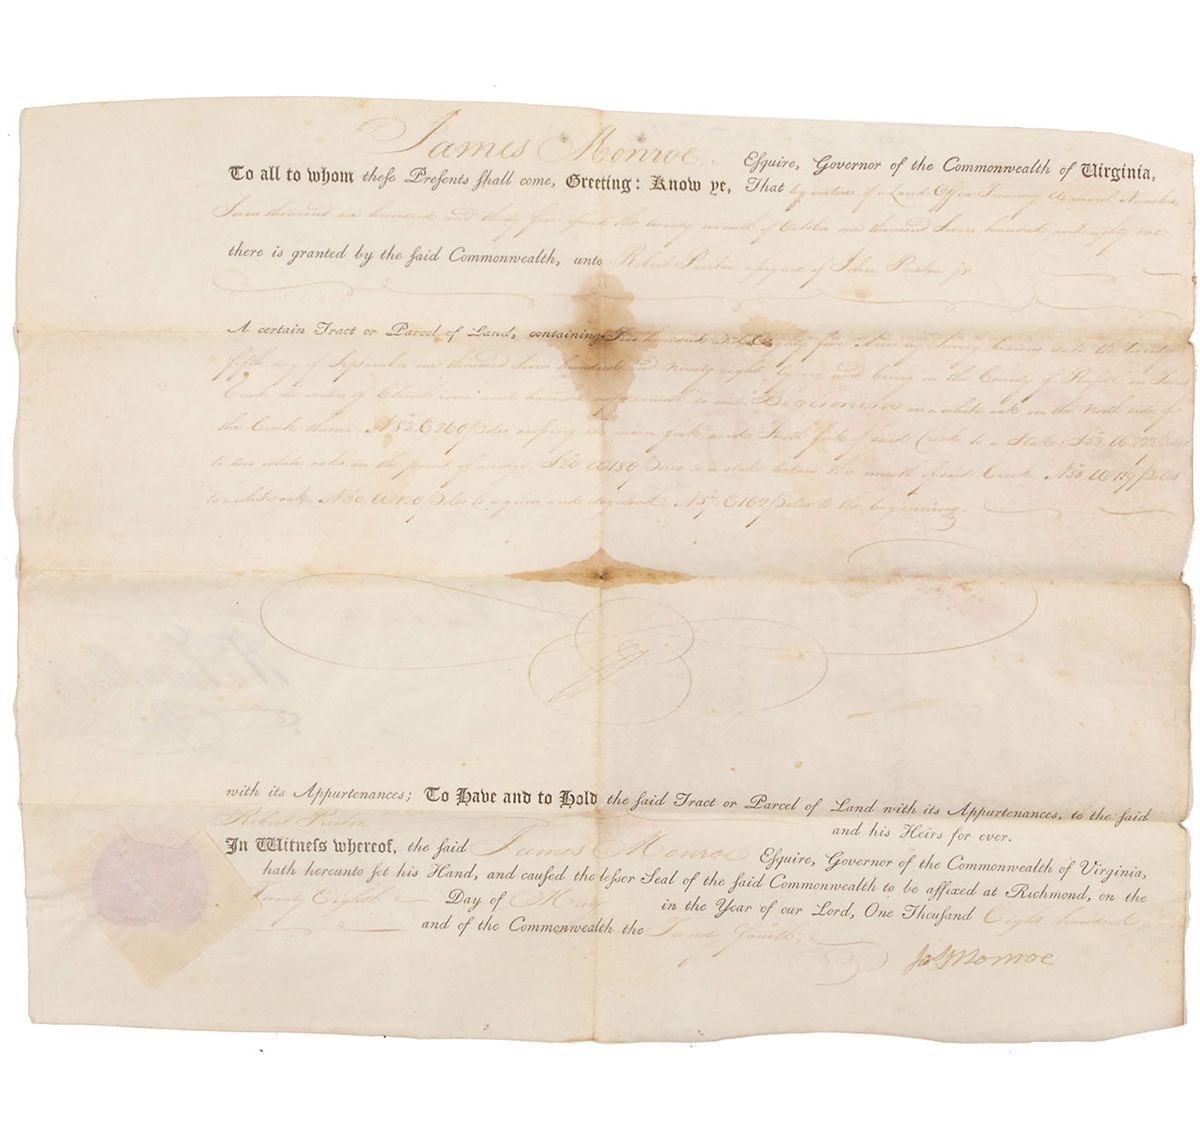 James Monroe Esquire, Governor of the Commonwealth of Virginia,
To all to whom these Presents shall come, Greeting: Know ye, That by virtue of a Land Office Treasury Warrant Number
Seven thousand six hundred and thirty five the twenty seventh of October one thousand Seven hundred and eighty one
there is granted by the said Commonwealth, unto Robert Preston assignee of John Preston jr
A certain Tract or Parcel of Land, containing hundred five Acres by Survey bearing date the twenty
fifth day of September one thousand Seven hundred and Ninety eight lying and being in the County of Russell in
Creek the waters of Clinch river and bounded as followeth, to wit: Beginning on a white oak on the North side of
the Creek thence N52 E 260 poles crossing the main fork and fork of said Creek to a Stake S53 W 222 poles
to two white oaks on the point of a ridge, S20 W 180 poles to a stake below the mouth of said Creek N38 W 119 poles
to a white oak N30 W 120 poles to a and dogwood N5 E 162 poles to the beginning.
with its Appurtenances; To Have and to Hold the said Tract or Parcel of Land with its Appurtenances, to the said
Robert Preston and his Heirs for ever.
In Witness whereof, the said James Monroe Esquire, Governor of the Commonwealth of Virginia,
hath hereunto set his Hand, and caused the lesser Seal of the said Commonwealth to be affixed at Richmond, on the
Twenty Eighth Day of May in the Year of our Lord, One Thousand Eight hundred
and of the Commonwealth the Twenty Fourth
Jas Monroe